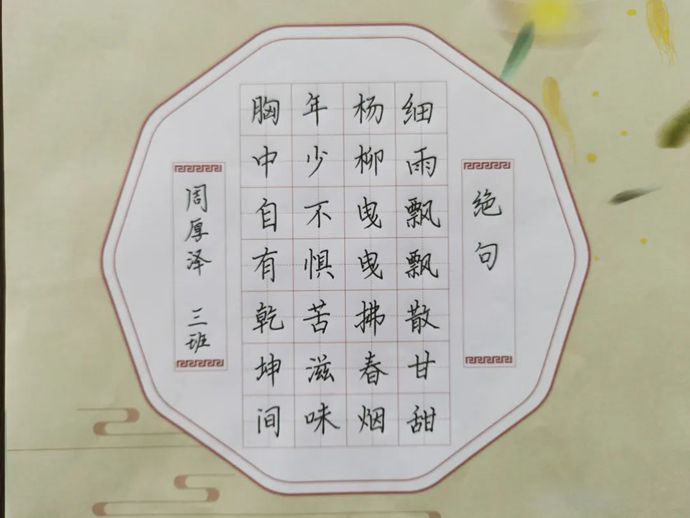 绝句
细雨飘飘散甘甜
杨柳曳曳拂春烟
年少不惧苦滋味
胸中自有乾坤间
周厚泽 三班